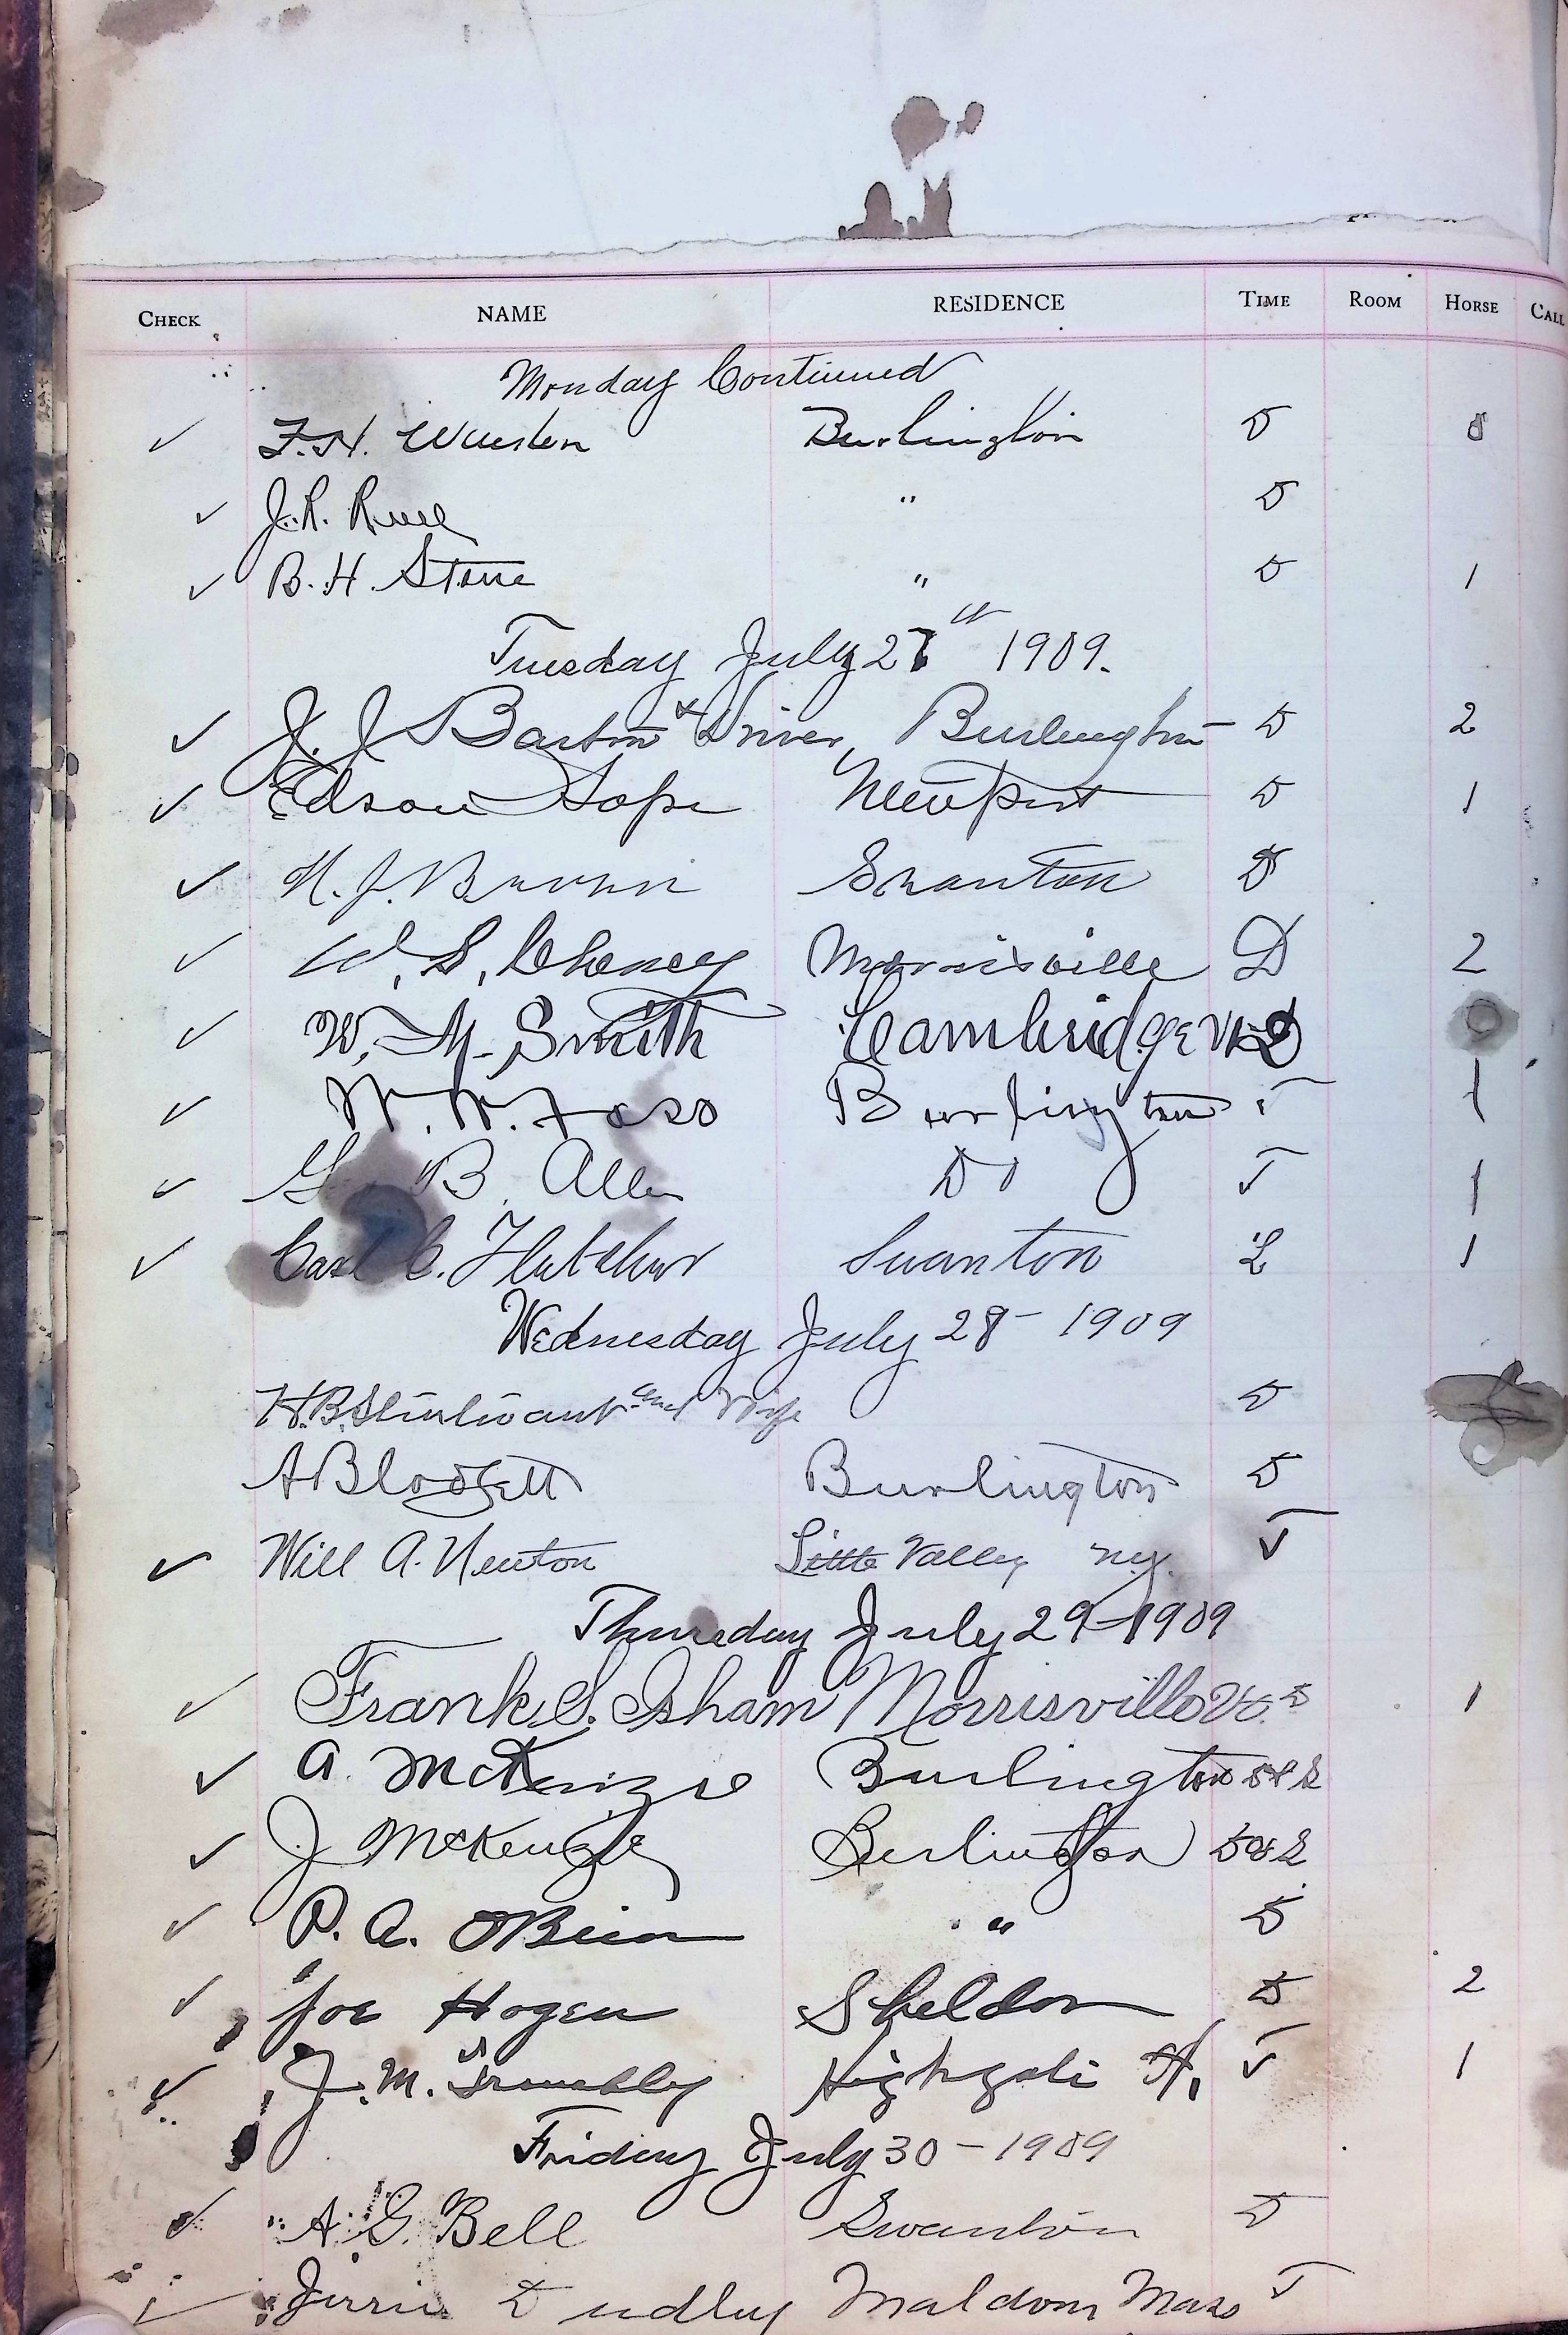 CHECK NAME RESIDENCE TIME ROOM HORSE CALL
Monday Continued
✓ F. H. Burlington D
✓ J. R. " D
✓ B. H. Stone " D 1
Tuesday July 27th 1909.
✓ J. J. Barton & Driver, Burlington D 2
✓ Edson Newport D 1
✓ H. J. Brown Swanton D
✓ W. S. Cheney Morrisville D 2
✓ W. M. Smith Cambridge Vt D
✓ W. W. Burlington T 1
✓ G. B. Allen Do T 1
✓ Carl C. Fletcher Swanton L 1
Wednesday July 28 - 1909
H. B. Sturtivant and Wife D
A Blodgett Burlington D
✓ Will A. Newton Little Valley N.Y. T
Thursday July 29 - 1909
✓ Frank S. Isham Morrisville Vt. D 1
✓ A. McKenzie Burlington D & S
✓ J McKenzie Burlington D & S
✓ P. A. OBrien " D
✓ Joe Hogen Sheldon D 2
✓ J. M. Trombly Highgate T 1
Friday July 30 - 1909
✓ A. G. Bell Swanton D
✓ Dudley Maldom Mass T